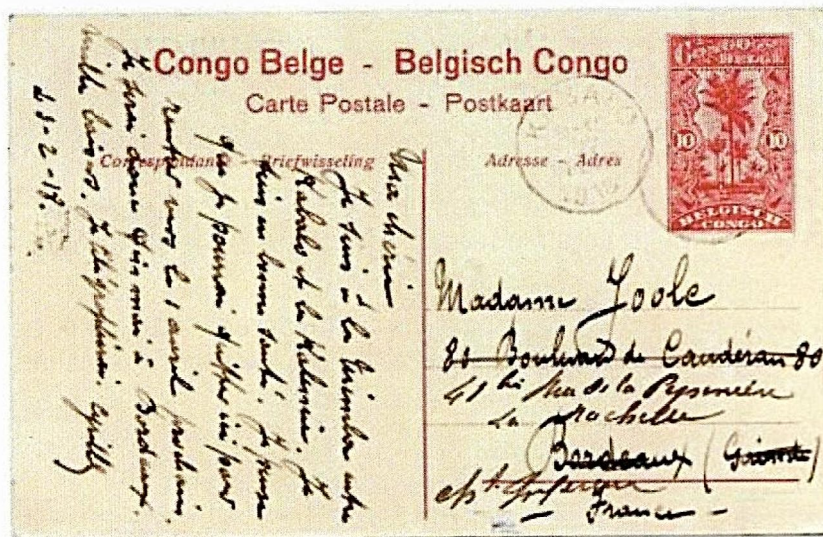 Congo Belge - Belgisch Congo
Carte Postale - Postkaart
Correspondance - Briefwisseling
Adresse - Adres
10 10
BELGISCH
CONGO
Ma chérie
Je suis à la entre
Kabalo et la . Je
suis en bonne santé. Je pense
que je pourrai ici pour
rentrer vers le 1 avril prochain.
Je serai donc fin mai à Bordeaux.
mille baisers. Je télégraphierai. Cyrille
23-2-17.
Madame Joole
80 Boulevard de Caudéran 80
41 bis Rue de la Pépinière
La Rochelle
Bordeaux (Gironde)
France